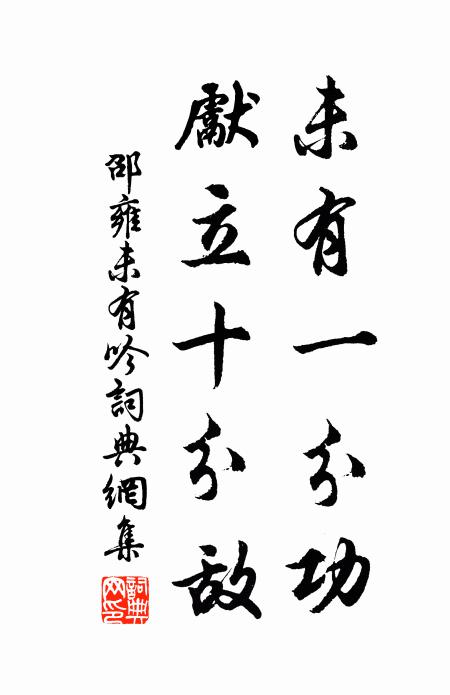 未有一分功
獻立十分敌
邵雍未有吟詞典網集
詞典网印